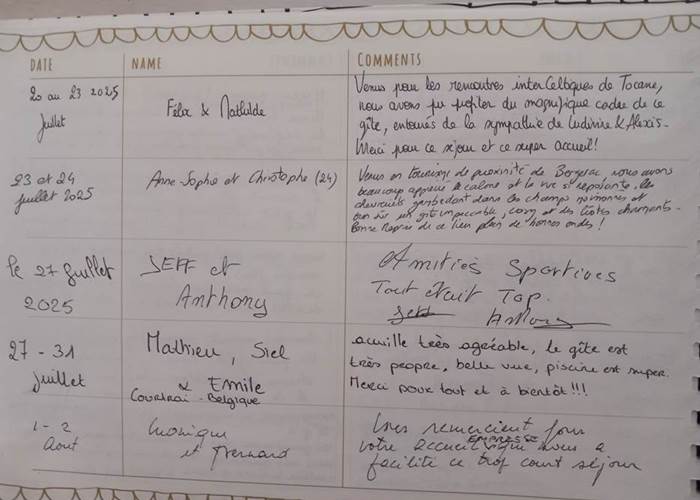 DATE NAME COMMENTS
20 au 23 2025
Juillet
Félix & Mathilde
Venus pour les rencontres interCeltiques de Tocane,
nous avons pu profiter du magnifique cadre de ce
gîte, entourés de la sympathie de Ludivine & Alexis.
Merci pour ce séjour et ce super accueil!
23 et 24
juillet 2025
Anne-Sophie et Christophe (24)
Venus en tourisme de proximité de Bergerac, nous avons
beaucoup apprécié le calme et la vue si reposante, les
chevreuils gambadant dans les champs
bien sûr un gîte impeccable, cosy et des hôtes charmants.
de ce lieu plein de bonnes ondes!
le 27 Juillet
2025
JEFF et
Anthony
Amitiés Sportives
Tout était Top.
27 - 31
juillet
Mathieu, Siel
& Emile
Courtrai - Belgique
accuille très agréable, le gîte est
très propre, belle vue, piscine est super.
Merci pour tout et à bientôt!!!
1 - 2
Aout
Monique
et Bernard
Vous remercient pour
votre accueil EMPRESSÉ qui nous a
facilité ce trop court séjour